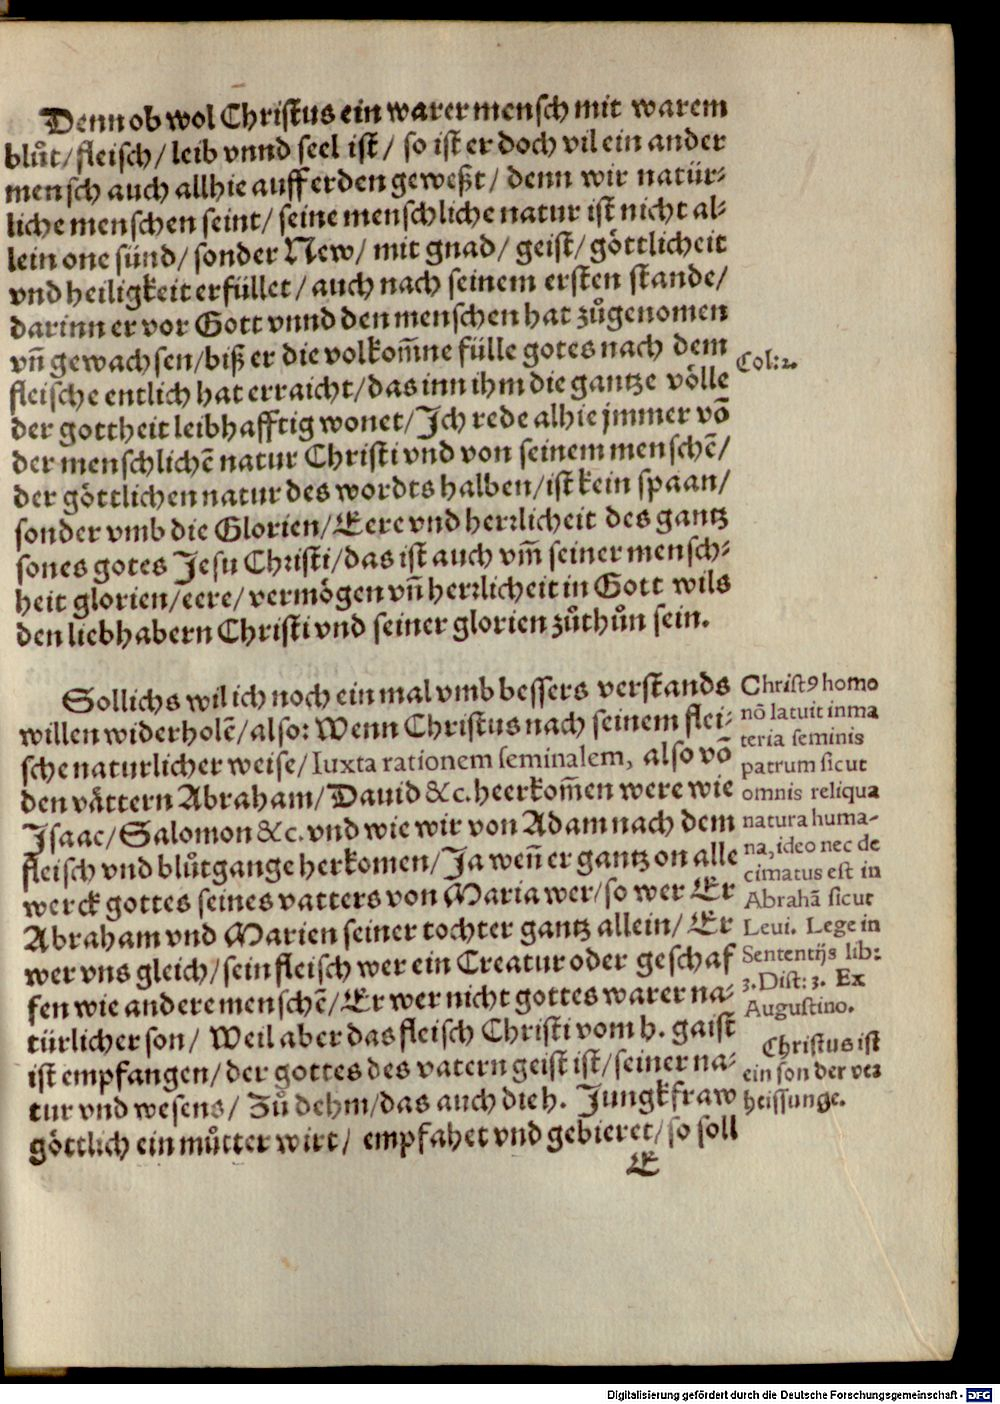 Denn ob wol Christus ein warer mensch mit warem
blůt/ fleisch/ leib vnnd seel ist/ so ist er doch vil ein ander
mensch auch allhie auff erden geweßt/ denn wir natür⸗
liche menschen seint/ seine menschliche natur ist nicht al⸗
lein one sünd/ sonder New/ mit gnad/ geist/ göttlicheit
vnd heiligkeit erfüllet/ auch nach seinem ersten stande/
darinn er vor Gott vnnd den menschen hat zůgenomen
vñ gewachsen/ biß er die volkom̃ne fülle gotes nach dem
fleische entlich hat erraicht/ das inn ihm die gantze völle
der gottheit leibhafftig wonet/ Ich rede alhie jmmer võ
der menschlichẽ natur Christi vnd von seinem menschẽ/
der göttlichen natur des wordts halben/ ist kein spaan/
sonder vmb die Glorien/ Eere vnd herrlicheit des gantz
sones gotes Jesu Christi/ das ist auch vm̃ seiner mensch⸗
heit glorien/ eere/ vermögen vñ herrlicheit in Gott wils
den liebhabern Christi vnd seiner glorien zůthůn sein.
Col: 2.
Sollichs wil ich noch ein mal vmb bessers verstands
willen widerholẽ/ also: Wenn Christus nach seinem flei⸗
sche naturlicher weise/ Iuxta rationem seminalem, also võ
den vättern Abraham/ Dauid &c. heerkom̃en were wie
Isaac/ Salomon &c. vnd wie wir von Adam nach dem
fleisch vnd blůtgange herkomen/ Ja weñ er gantz on alle
werck gottes seines vatters von Maria wer/ so wer Er
Abraham vnd Marien seiner tochter gantz allein/ Er
wer vns gleich/ sein fleisch wer ein Creatur oder geschaf
fen wie andere menschẽ/ Er wer nicht gottes warer na⸗
türlicher son/ Weil aber das fleisch Christi vom h. gaist
ist empfangen/ der gottes des vatern geist ist/ seiner na⸗
tur vnd wesens/ Zů dehm/ das auch die h. Jungkfraw
göttlich ein můtter wirt/ empfahet vnd gebieret/ so soll
E
Christꝰ homo
nõ latuit in ma
teria seminis
patrum sicut
omnis reliqua
natura huma-
na, ideo nec de
cimatus est in
Abrahã sicut
Leui. Lege in
Sententijs lib:
3. Dist: 3. Ex
Augustino.
Christus ist
ein son der ver
heissunge.
Digitalisierung gefördert durch die Deutsche Forschungsgemeinschaft - DFG